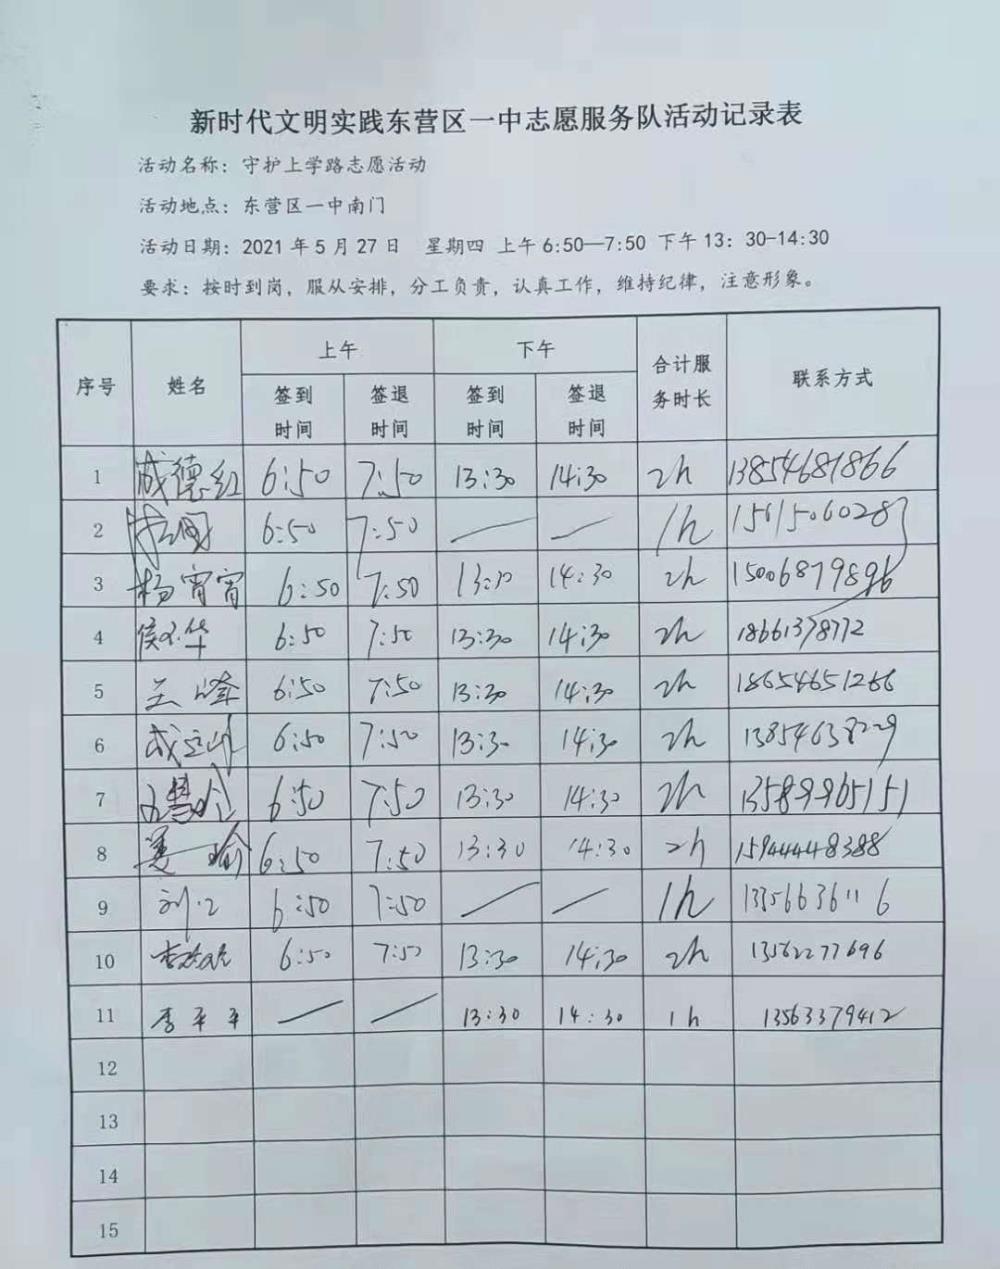 新时代文明实践东营区一中志愿服务队活动记录表
活动名称：守护上学路志愿活动
活动地点：东营区一中南门
活动日期：2021 年 5 月 27 日 星期四 上午 6:50—7:50 下午 13：30-14:30
要求：按时到岗，服从安排，分工负责，认真工作，维持纪律，注意形象。
序号 姓名 上午 下午 合计服务时长 联系方式
签到时间 签退时间 签到时间 签退时间
1 成德红 6:50 7:50 13:30 14:30 2h 13854681866
2 6:50 7:50 — — 1h 15615060283
3 杨宵宵 6:50 7:50 13:30 14:30 2h 15006879896
4 6:50 7:50 13:30 14:30 2h 18661378772
5 王峰 6:50 7:50 13:30 14:30 2h 18654651266
6 6:50 7:50 13:30 14:30 2h 13854638229
7 6:50 7:50 13:30 14:30 2h 13589965151
8 6:50 7:50 13:30 14:30 2h 15944448388
9 6:50 7:50 — — 1h 13356636116
10 6:50 7:50 13:30 14:30 2h 13562277696
11 李平平 — — 13:30 14:30 1h 13563379412
12
13
14
15